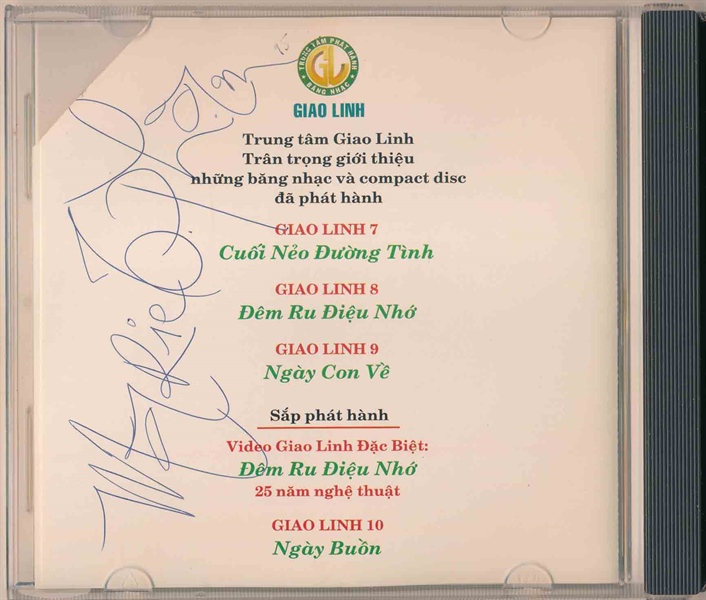 TRUNG TÂM PHÁT HÀNH
GL
BĂNG NHẠC
GIAO LINH
Trung tâm Giao Linh
Trân trọng giới thiệu
những băng nhạc và compact disc
đã phát hành
GIAO LINH 7
Cuối Nẻo Đường Tình
GIAO LINH 8
Đêm Ru Điệu Nhớ
GIAO LINH 9
Ngày Con Về
Sắp phát hành
Video Giao Linh Đặc Biệt:
Đêm Ru Điệu Nhớ
25 năm nghệ thuật
GIAO LINH 10
Ngày Buồn